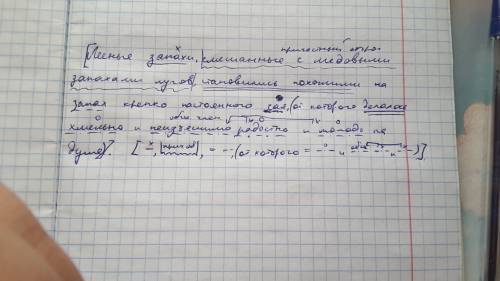 причастный оборот
[Лесные запахи, |смешанные с медовыми
запахами лугов|, становились похожими на
запах крепко настоенного чая, (от которого делалось
хмельно и неизъяснимо радостно и молодо на
душе)]. [ , |прич. об|, = , (от которого = и и )]